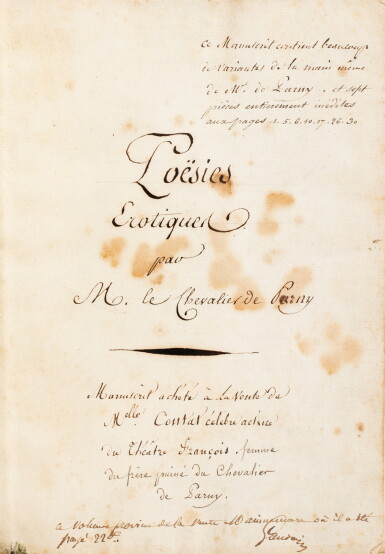 ce Manuscrit contient beaucoup
de variantes de la main même
de Mr. de Parny. et sept
pièces entierement inédites
aux pages 1. 5. 6. 10. 17. 26. 30
Poësies
Erotiques
par
M. le Chevalier de Parny
Manuscrit acheté à la Vente de
Melle Contat célèbre actrice
du Théâtre François. femme
du frère puiné du Chevalier
de Parny.
ce volume provient de la vente où il a été
payé 22